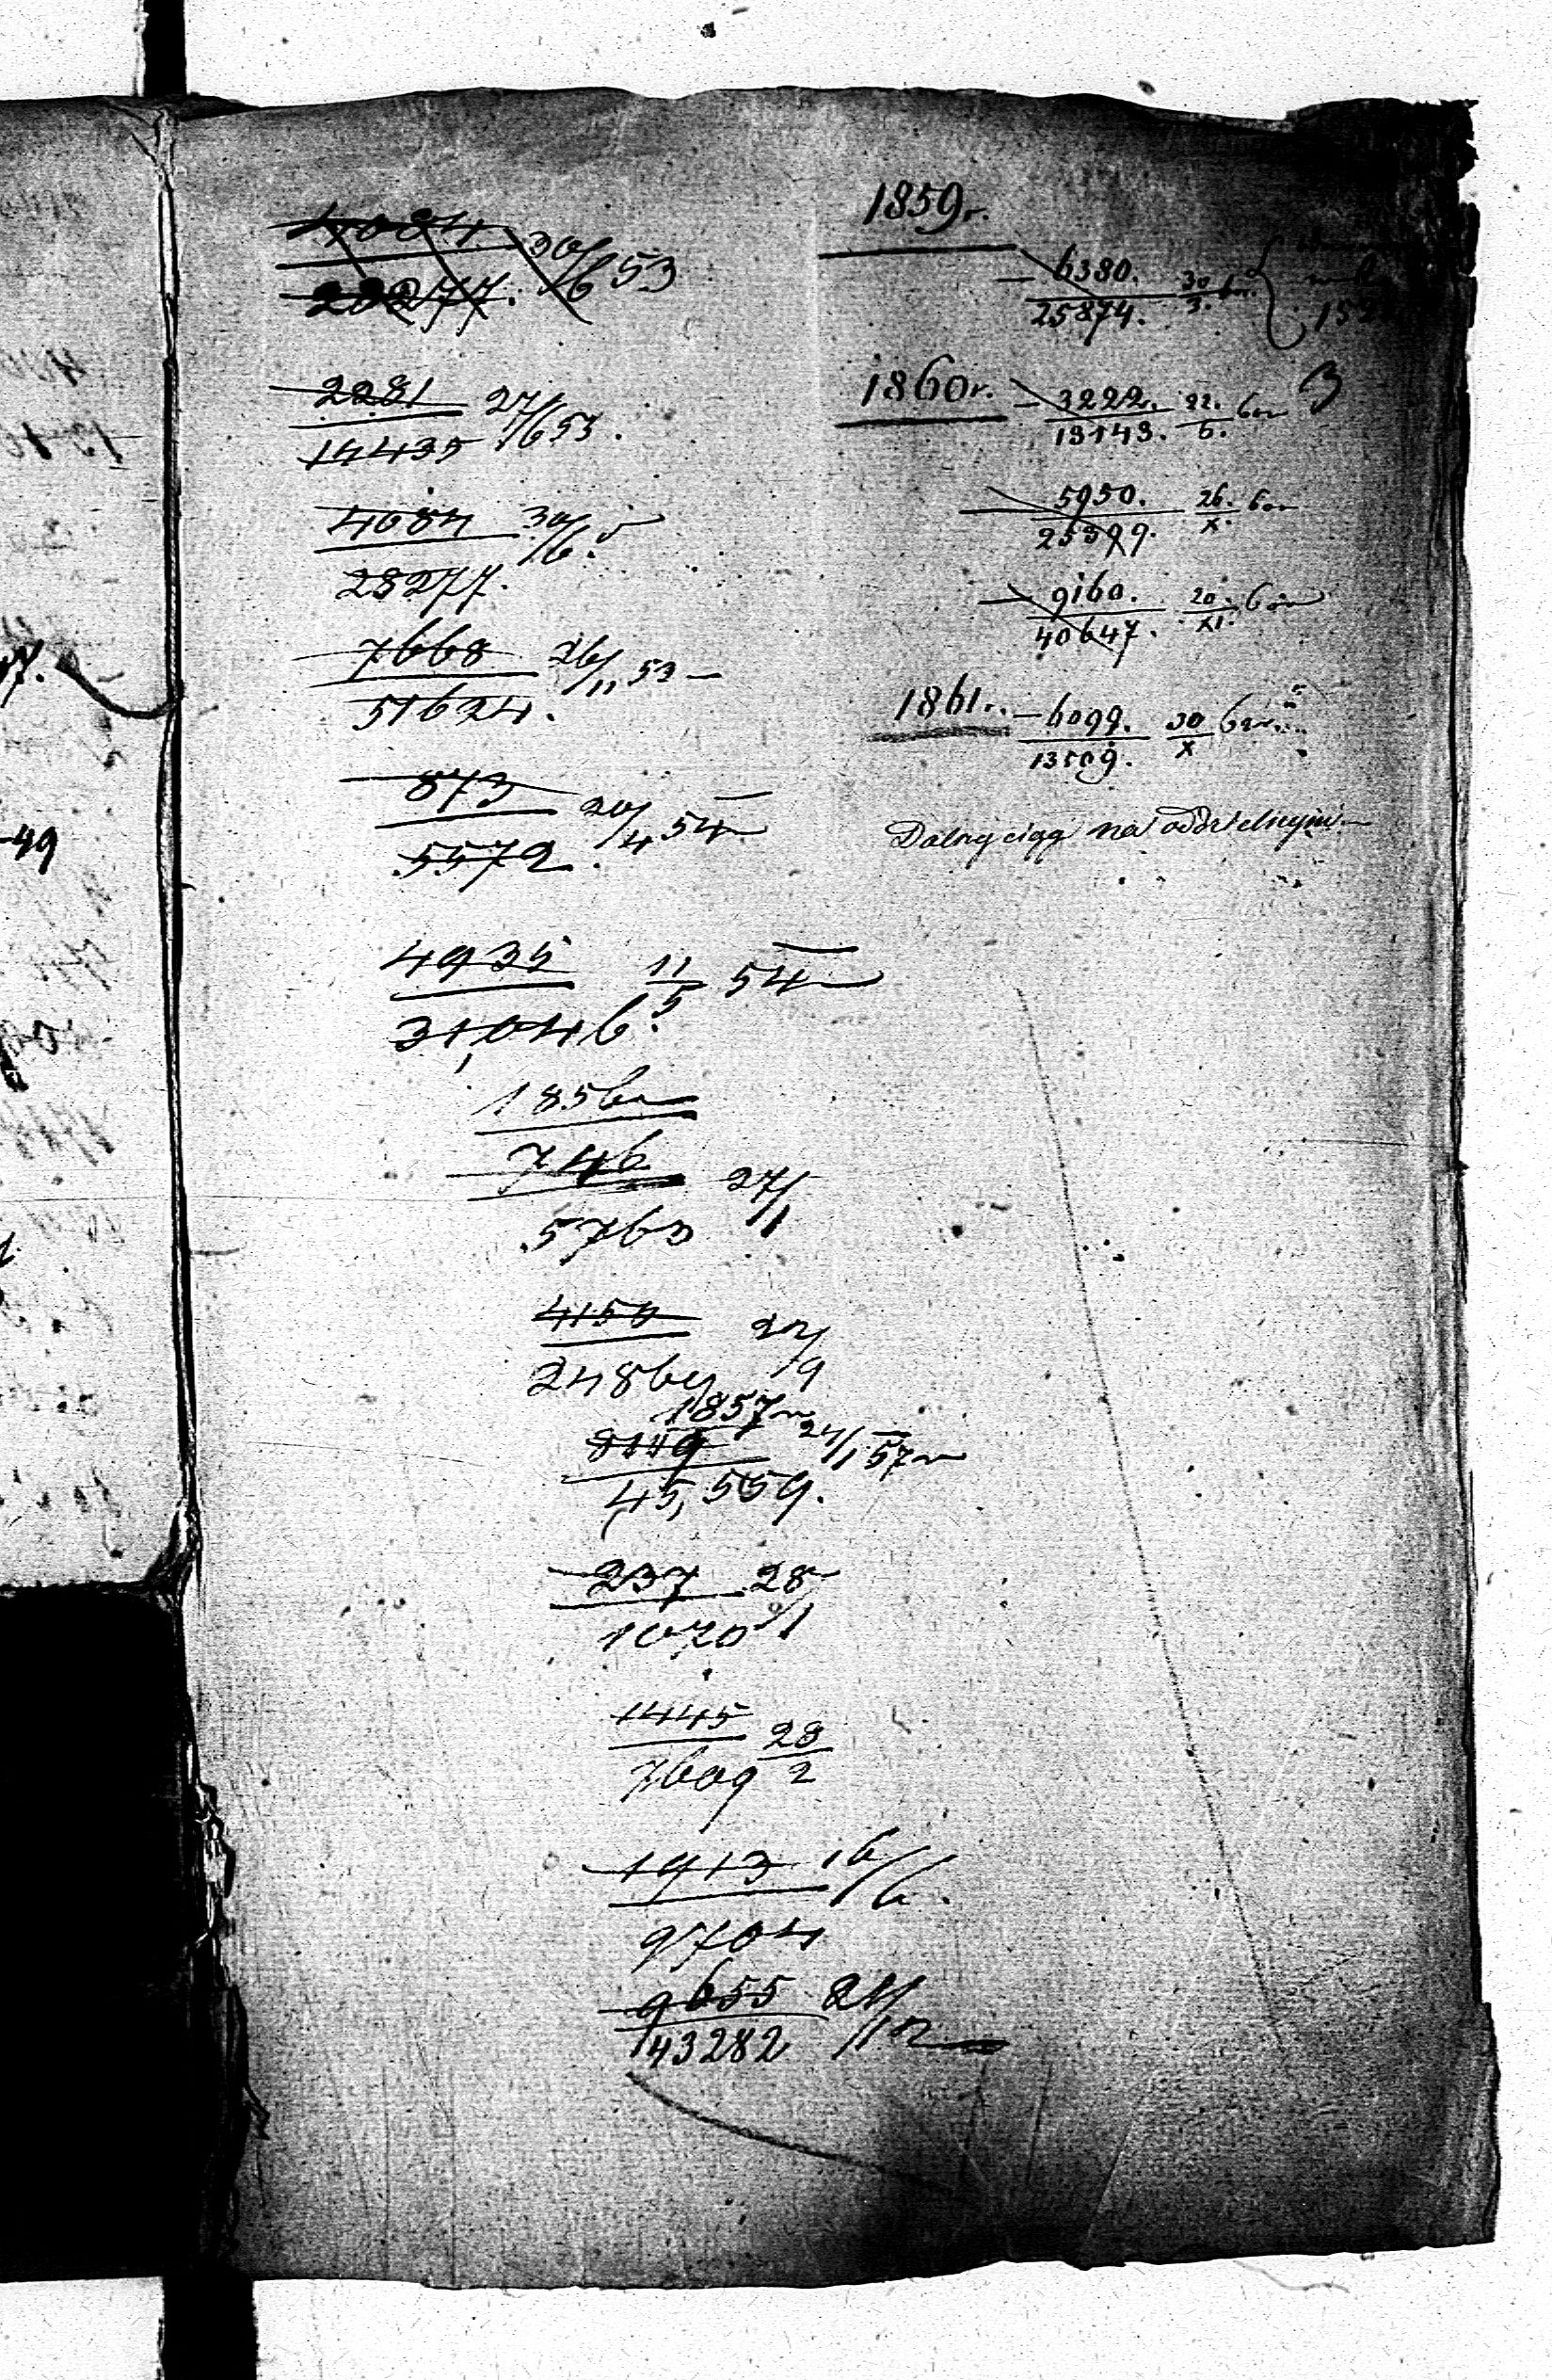 4084 30/6 53
28277.
2281 27/6 53.
14435
4084 30/6.
28277.
7668 26/11 53
51624.
873 20/4 54
5572.
4935 11/5 54
31,046.
1856r
746 27/1
5763
4150
2486
1857r
8149 24/1 57r
45,559.
237 28/1
1070
1445 28/2
7609
1913 16/6.
9704
9655
43282
1859r.
6380. 30/3.
25874.
1860r. 3222. 22./6. 60r
13143.
5950. 26./X. 60r
25399.
9160. 20./XI. 60r
40647.
1861r. 6099. 30/X
13509.
Dalszy ciąg na oddzielnym